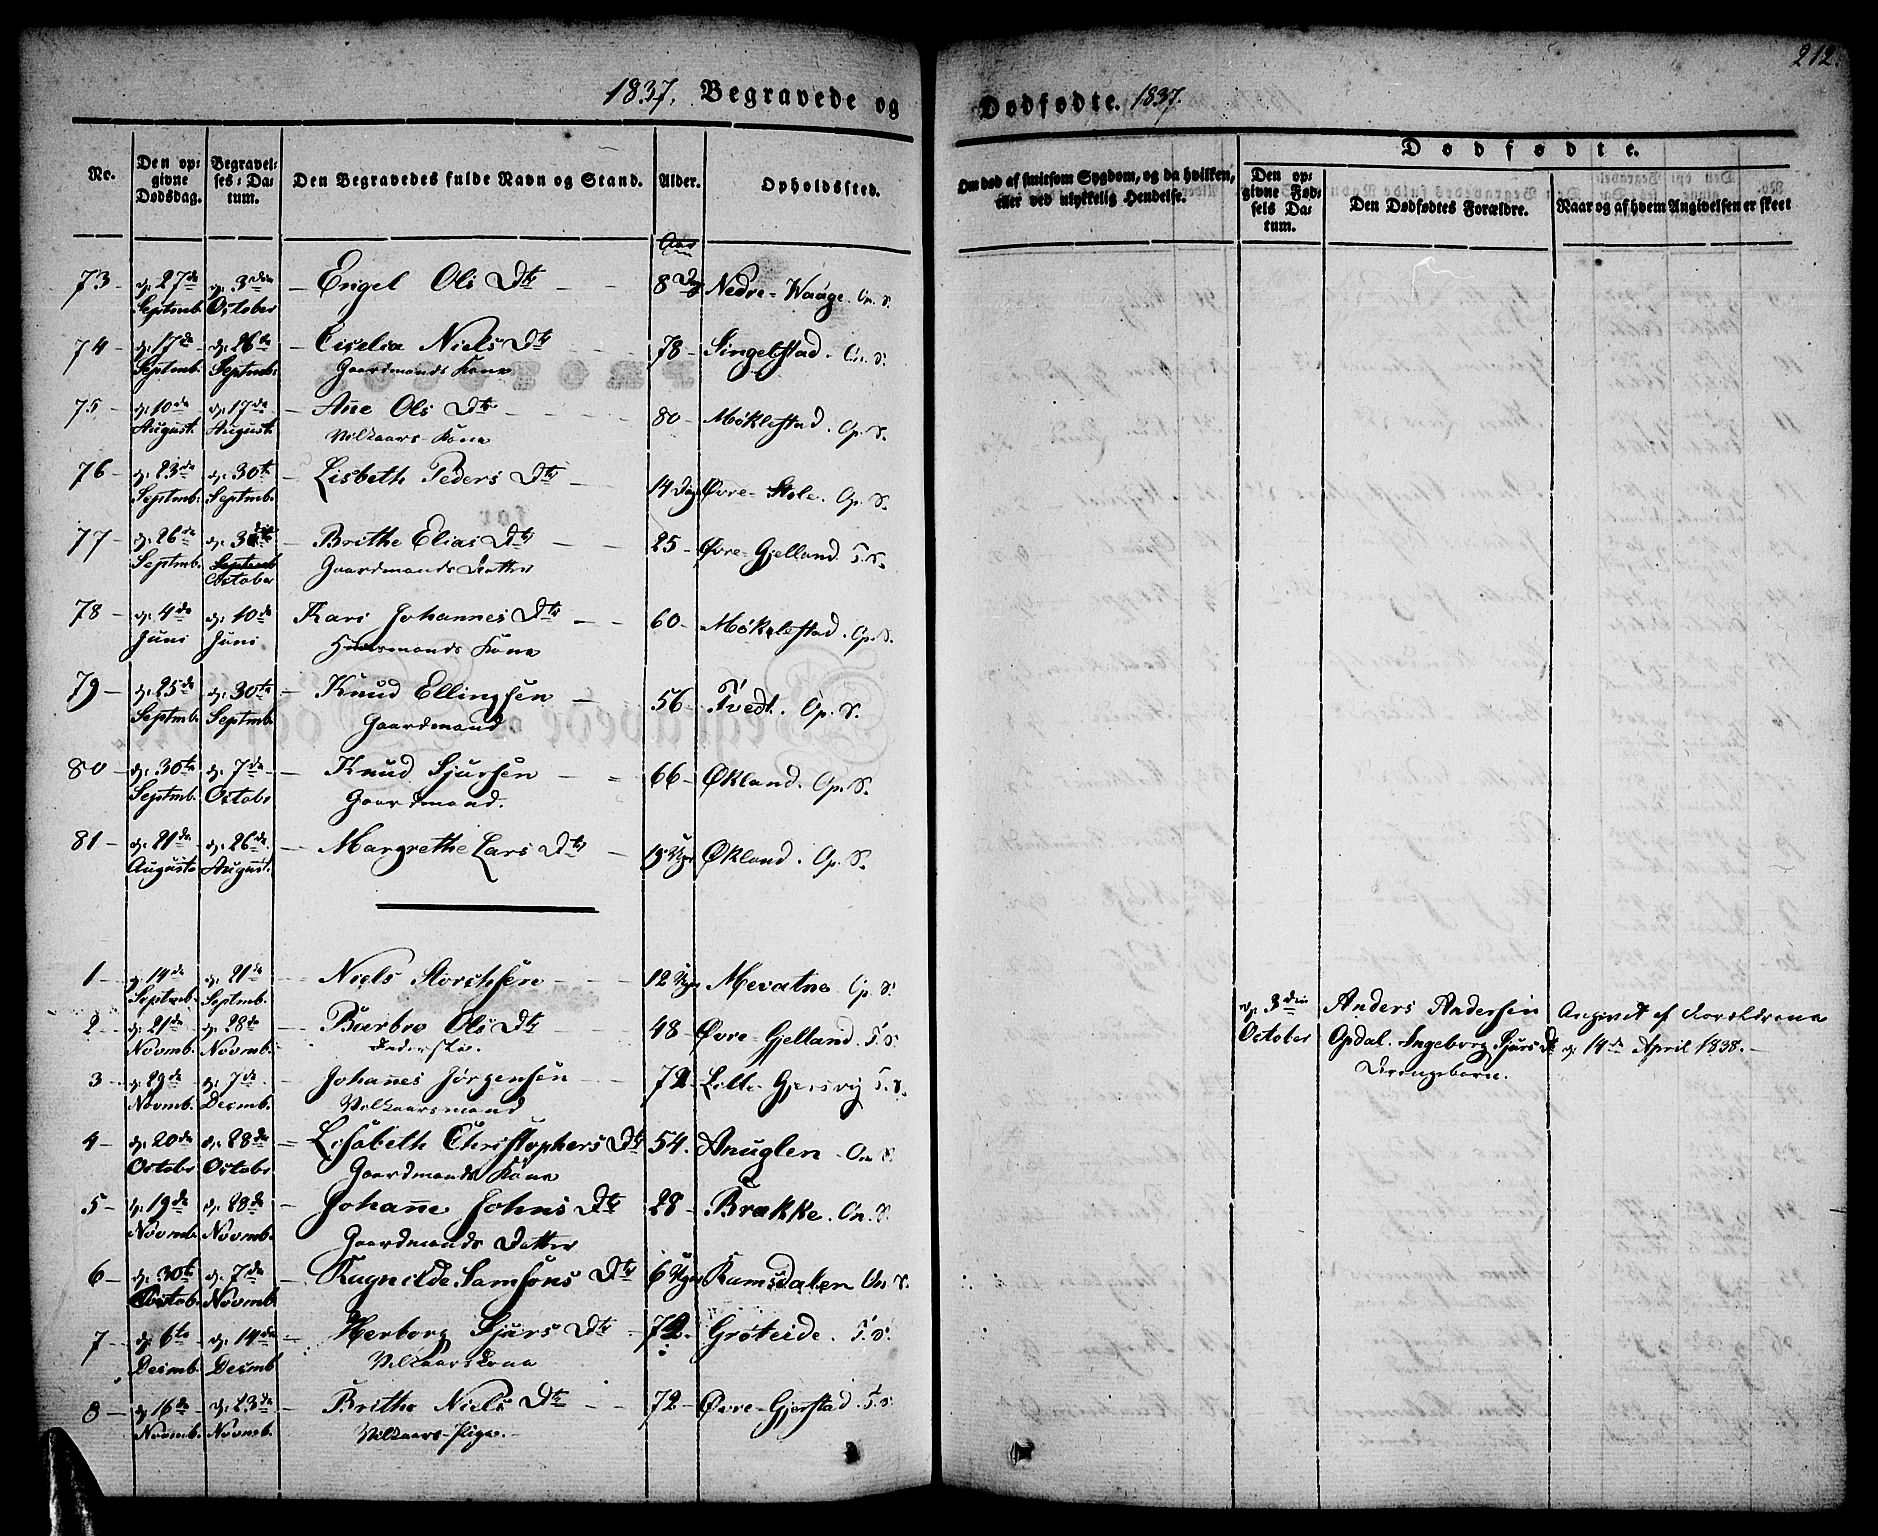 212.
1837. Begravede og Dødfødte. 1837.
No.
Den opgivne Dødsdag.
Begravelses-Datum.
Den Begravedes fulde Navn og Stand.
Alder.
Opholdssted.
Om død af smitsom Sygdom, og da hvilken, eller ved ulykkelig Hendelse.
Dødfødte.
Den opgivne Fødsels Datum.
Den Dødfødtes Forældre.
Naar og af hvem Angivelsen er skeet
Aar
73 – d. 27de d. 3die – Engel Ols Dtr – 8 Dag Nedre-Waage. On. S.
Septmb. October
74 – d. 17de d. 26de – Cicelia Niels Dtr – 78 – Singelstad. On. S.
Septmb. Septmb. Gaardmands Kone
75 – d. 10de d. 17de – Ane Ols Dtr – 80 – Møklestad. Op. S.
August. August. Vilkaars-Kone
76 – d. 23de d. 30te – Lisbeth Peders Dtr – 14 Dag Øvre-Stole. Op. S.
Septmb. Septmb.
77 – d. 26de d. 3die – Brithe Elias Dtr – 25 – Øvre-Gjelland T. S.
Septmb. Septmb Gaardmands Datter
October
78 – d. 4de d. 10de Kari Johannes Dtr – 60 – Møklestad. Op. S.
Juni Juni Huusmands Kone
79 – d. 25de d. 30te – Knud Ellingsen – 56 – Tvedt. Op. S.
Septmb. Septmb. Gaardmand
80 – d. 30te d. 7de – Knud Sjursen – 66 – Økland. Op. S.
Septmb. Octobr Gaardmand.
81 – d. 21de d. 26de – Margrethe Lars Dtr – 15 Uger Økland. Op. S.
Augusto August.
1 – d. 14de d. 21de – Niels Storchsen – 12 Uger Mevatne Op. S.
Septmb. Septmb.
2 – d. 21de d. 28de – Barbro Ols Dtr – 48 – Øvre-Gjelland. T. S.
Novmb. Novmb.
d. 3die Anders Andersen Angivet af Forældrene
October Opdal. Ingeborg Sjurs Dtr d. 14de April 1838. –
Drengebarn.
3 – d. 29de d. 7de – Johanes Jørgensen – 72 – Lille-Gjersvig T. S.
Novmb. Decmb. Vilkaarsmand
4 – d. 20de d. 28de – Lisabeth Christophers Dtr 54. Anuglen – On S.
Octobr Octobr Gaardmands Kone
5 – d. 19de d. 28de – Johane Johns Dtr 28 – Brække. On. S.
Novmb. Novmb. Gaardmands Datter
6 – d. 30te d. 7de – Ragnilde Samsons Dtr 6 Uger Ramsdalen On S.
Octob. Novmb.
7 – d. 6te d. 14de – Herborg Sjurs Dtr – 72. Grøteide. T. S.
Decmb. Decmb Vilkaarskone
8 – d. 16de d. 23de – Brithe Niels Dtr – 72 – Øvre-Gjerstad. T. S.
Novmb. Novmb. Vilkaars-Pige. –